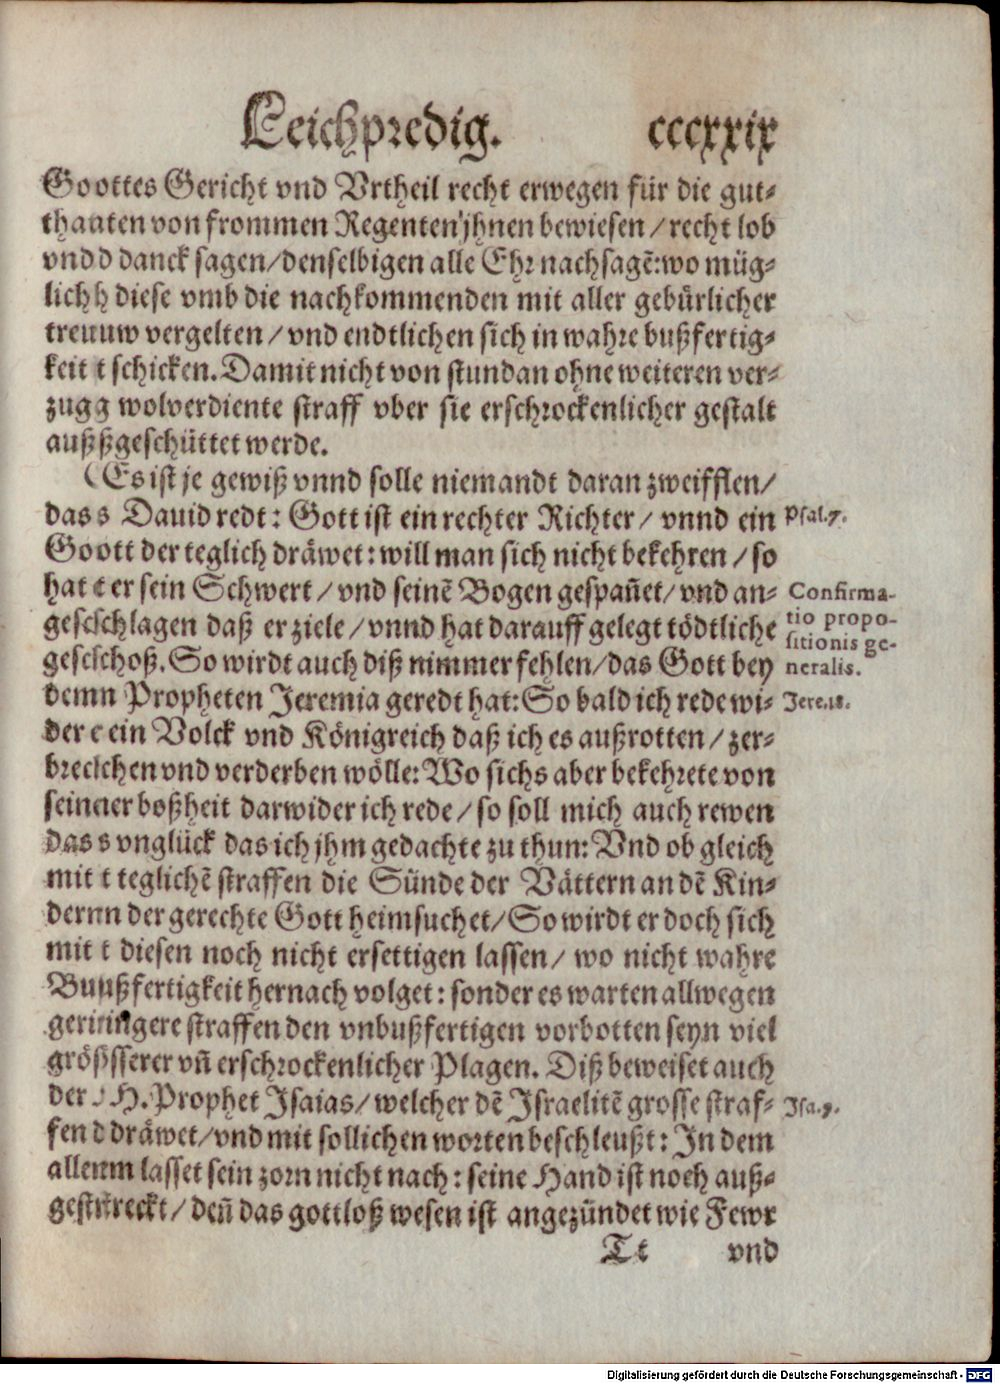 Leichpredig. cccxxix
Goottes Gericht vnd Vrtheil recht erwegen für die gut-
thaaten von frommen Regenten jhnen bewiesen / recht lob
vndd danck sagen / denselbigen alle Ehr nachsagẽ: wo müg-
lichh diese vmb die nachkommenden mit aller gebürlicher
treuuw vergelten / vnd endtlichen sich in wahre bußfertig-
keit t schicken. Damit nicht von stundan ohne weiteren ver-
zugg wolverdiente straff vber sie erschrockenlicher gestalt
außßgeschüttet werde.
(Es ist je gewiß vnnd solle niemandt daran zweifflen /
das s Dauid redt: Gott ist ein rechter Richter / vnnd ein
Psal.7.
Goott der teglich dräwet: will man sich nicht bekehren / so
hat t er sein Schwert / vnd seinẽ Bogen gespañet / vnd an-
Confirma-
tio propo-
sitionis ge-
neralis.
gescschlagen daß er ziele / vnnd hat darauff gelegt tödtliche
gescschoß. So wirdt auch diß nimmer fehlen / das Gott bey
demn Propheten Jeremia geredt hat: So bald ich rede wi-
Jere.18.
der e ein Volck vnd Königreich daß ich es außrotten / zer-
breclchen vnd verderben wölle: Wo sichs aber bekehrete von
seinner boßheit darwider ich rede / so soll mich auch rewen
das s vnglück das ich jhm gedachte zu thun: Vnd ob gleich
mit t teglichẽ straffen die Sünde der Vättern an dẽ Kin-
dernn der gerechte Gott heimsuchet / So wirdt er doch sich
mit t diesen noch nicht ersettigen lassen / wo nicht wahre
Buußfertigkeit hernach volget: sonder es warten allwegen
geriringere straffen den vnbußfertigen vorbotten seyn viel
grösssserer vñ erschrockenlicher Plagen. Diß beweiset auch
der H. Prophet Isaias / welcher dẽ Israelitẽ grosse straf-
Isa.9.
fen d dräwet / vnd mit sollichen worten beschleußt: In dem
allenm lasset sein zorn nicht nach: seine Hand ist noch auß-
gestrreckt / deñ das gottloß wesen ist angezündet wie Fewr
Tt vnd
Digitalisierung gefördert durch die Deutsche Forschungsgemeinschaft - DFG